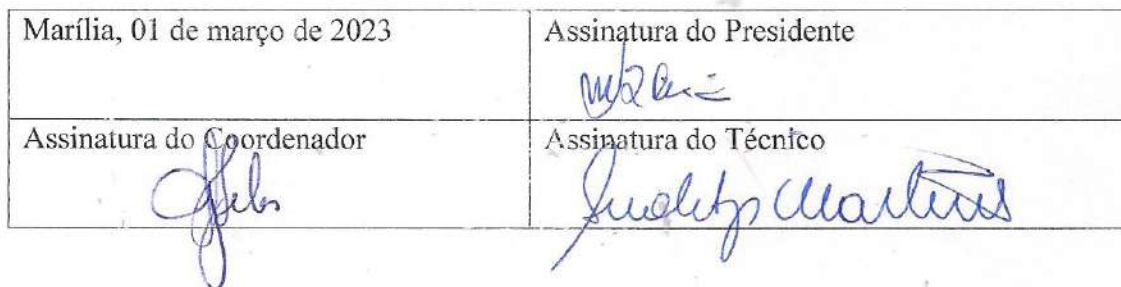 Marília, 01 de março de 2023
Assinatura do Presidente
Assinatura do Coordenador
Assinatura do Técnico
Martins